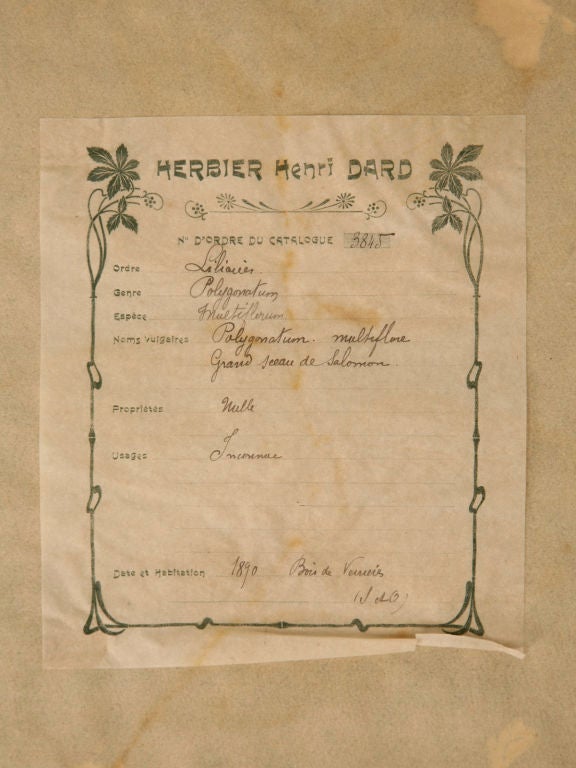 HERBIER Henri DARD
No D'ORDRE DU CATALOGUE 3845
Ordre Liliacées
Genre Polygonatum
Espèce Multiflorum
Noms vulgaires Polygonatum. multiflore
Grand sceau de Salomon.
Propriétés Nulle
Usages Inconnue
Date et Habitation 1890 Bois de
(S et O)